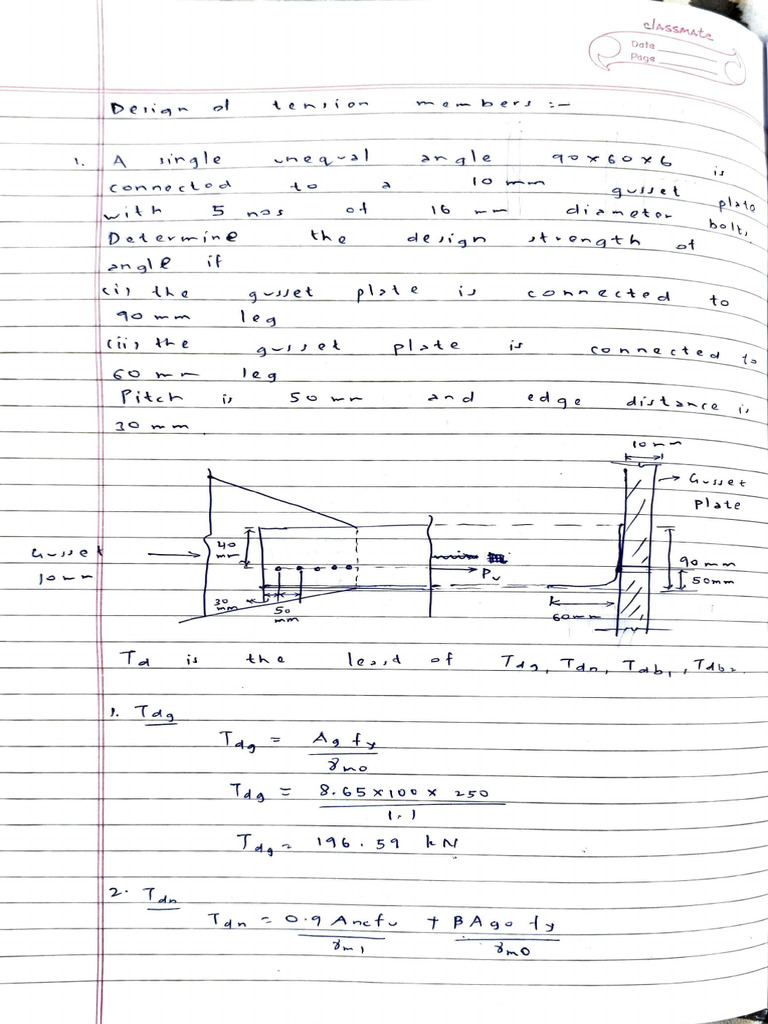 classmate
Date
Page
Design of tension members :-
1. A single unequal angle 90×60×6 is
connected to a 10 mm gusset plate
with 5 nos of 16 mm diameter bolts,
Determine the design strength of
angle if
(i) the gusset plate is connected to
90 mm leg
(ii) the gusset plate is connected to
60 mm leg
Pitch is 50 mm and edge distance is
30 mm.
10 mm
Gusset
plate
40
mm
Gusset
10 mm
Pu
90 mm
50mm
30
mm
50
mm
60mm
Td is the least of Tdg, Tdn, Tdb1, Tdb2
1. Tdg
Tdg = Ag fy
γm0
Tdg = 8.65×100× 250
1.1
Tdg = 196.59 kN
2. Tdn
Tdn = 0.9 Anc fu + β Ago fy
γm1 γm0